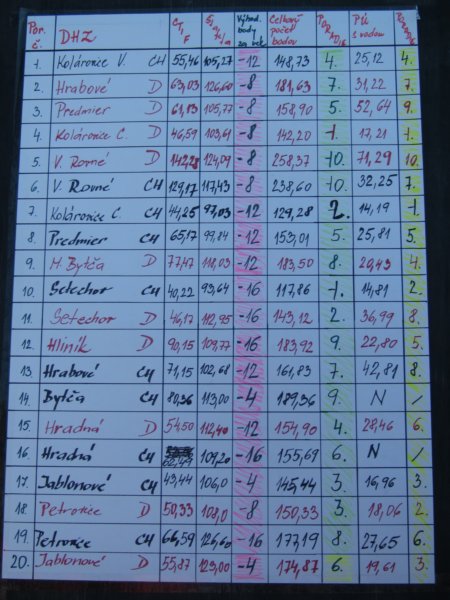 Por. č. DHZ CTIF Štafeta Výhod. body za vek Celkový počet bodov PORADIE PÚ s vodou PORADIE
1. Kolárovice V. CH 55,46 105,27 -12 148,73 4. 25,12 4.
2. Hrabové D 63,03 126,60 -8 181,63 7. 31,22 7.
3. Predmier D 61,13 105,77 -8 158,90 5. 52,64 9.
4. Kolárovice C. D 46,59 103,61 -8 142,20 1. 17,21 1.
5. V. Rovné D 142,28 124,09 -8 258,37 10. 71,29 10.
6. V. Rovné CH 129,17 117,43 -8 238,60 10. 32,25 7.
7. Kolárovice C. CH 44,25 97,03 -12 129,28 2. 14,19 1.
8. Predmier CH 65,17 99,84 -12 153,01 5. 25,81 5.
9. H. Bytča D 77,47 118,03 -12 183,50 8. 20,43 4.
10. Setechov CH 40,22 93,64 -16 117,86 1. 14,81 2.
11. Setechov D 46,17 112,95 -16 143,12 2. 36,99 8.
12. Hliník D 90,15 109,77 -16 183,92 9. 22,80 5.
13. Hrabové CH 71,15 102,68 -12 161,83 7. 42,81 8.
14. Bytča CH 80,36 113,00 -4 189,36 9. N /
15. Hradná D 54,50 112,40 -12 154,90 4. 28,46 6.
16. Hradná CH 62,49 109,20 -16 155,69 6. N /
17. Jablonové CH 43,44 106,0 -4 145,44 3. 16,96 3.
18. Petrovice D 50,33 108,0 -8 150,33 3. 18,06 2.
19. Petrovice CH 66,59 126,60 -16 177,19 8. 27,65 6.
20. Jablonové D 55,87 123,00 -4 174,87 6. 19,61 3.